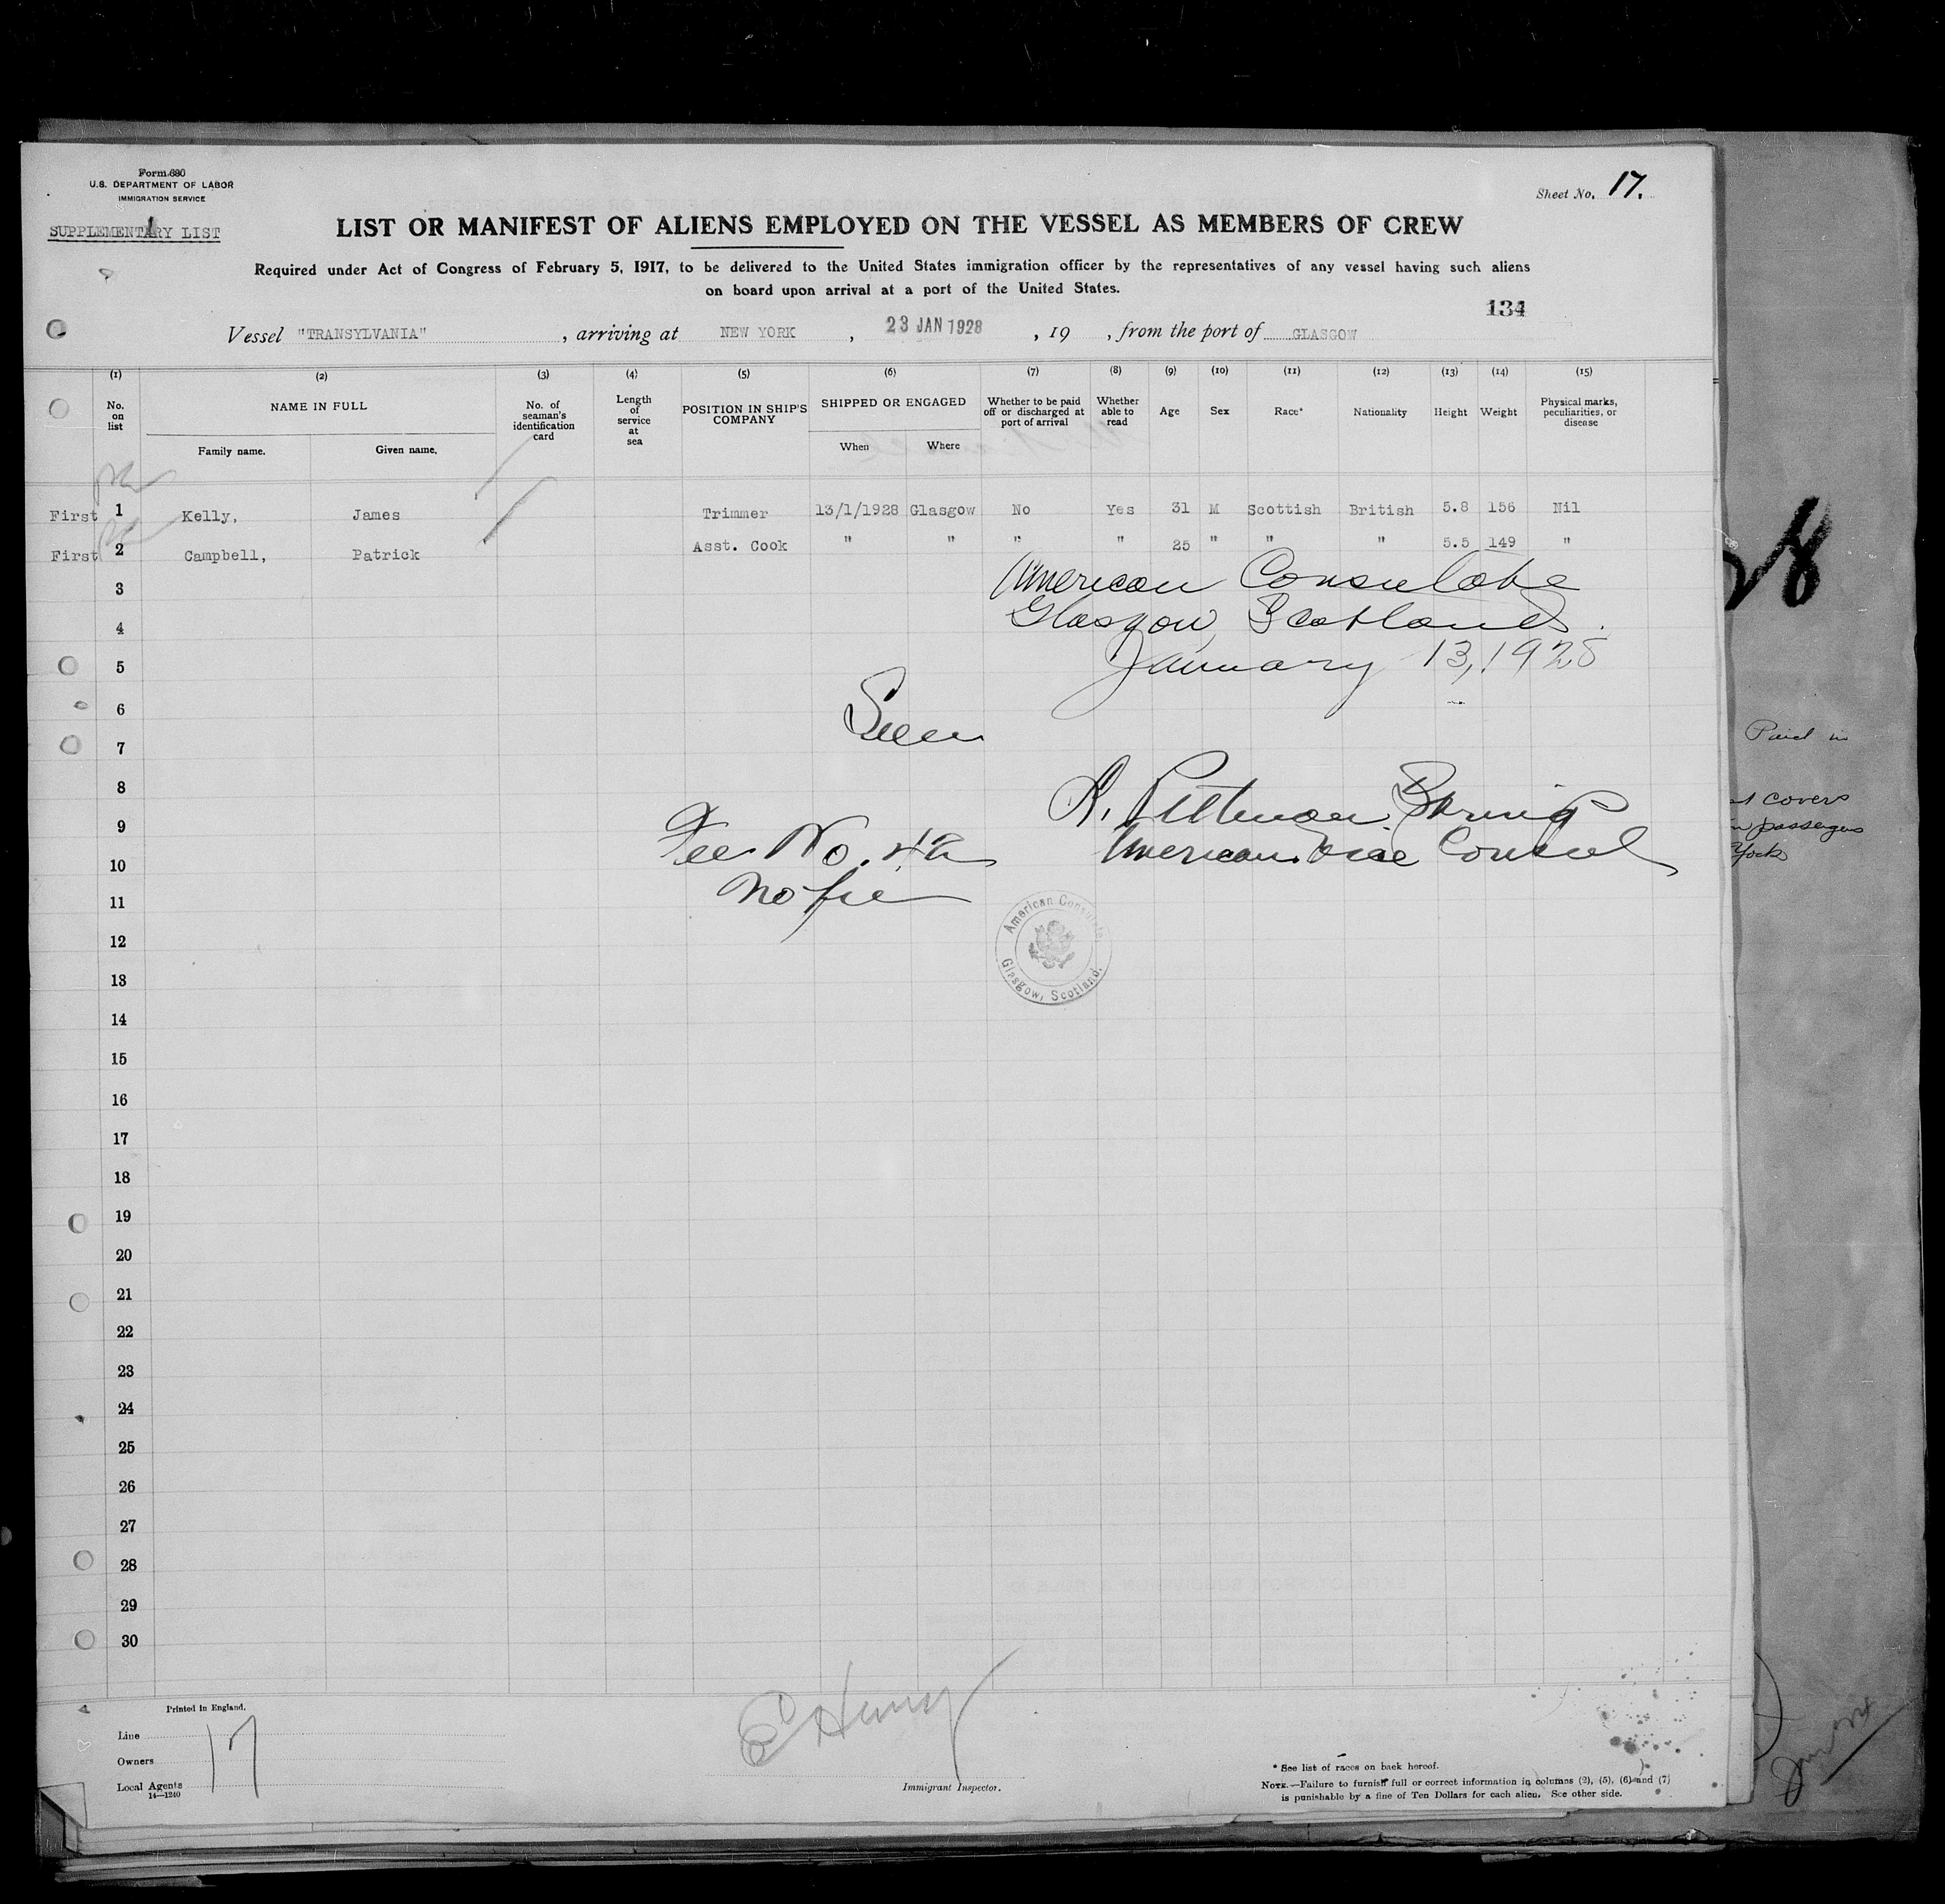 Form 680
U.S. DEPARTMENT OF LABOR
IMMIGRATION SERVICE
SUPPLEMENTARY LIST
1
Sheet No. 17.
LIST OR MANIFEST OF ALIENS EMPLOYED ON THE VESSEL AS MEMBERS OF CREW
Required under Act of Congress of February 5, 1917, to be delivered to the United States immigration officer by the representatives of any vessel having such aliens
on board upon arrival at a port of the United States.
134
Vessel "TRANSYLVANIA", arriving at NEW YORK, 23 JAN 1928, 19 , from the port of GLASGOW
(1) (2) (3) (4) (5) (6) (7) (8) (9) (10) (11) (12) (13) (14) (15)
No. on list NAME IN FULL Family name. Given name. No. of seaman's identification card Length of service at sea POSITION IN SHIP'S COMPANY SHIPPED OR ENGAGED When Where Whether to be paid off or discharged at port of arrival Whether able to read Age Sex Race* Nationality Height Weight Physical marks, peculiarities, or disease
First 1 Kelly, James Trimmer 13/1/1928 Glasgow No Yes 31 M Scottish British 5.8 156 Nil
First 2 Campbell, Patrick Asst. Cook " " " " 25 " " " 5.5 149 "
3
American Consulate
4
Glasgow, Scotland.
5
January 13, 1928
6
Seen
7
8
9
10
11
Fee No. 42
No fee
American Vice Consul
American Consulate,
Glasgow, Scotland.
12
13
14
15
16
17
18
19
20
21
22
23
24
25
26
27
28
29
30
Printed in England.
Line
Owners
Local Agents
14—1240
17
Henry
Immigrant Inspector.
* See list of races on back hereof.
NOTE.—Failure to furnish full or correct information in columns (2), (5), (6) and (7)
is punishable by a fine of Ten Dollars for each alien. See other side.
28
Paid in
covers
passengers
York